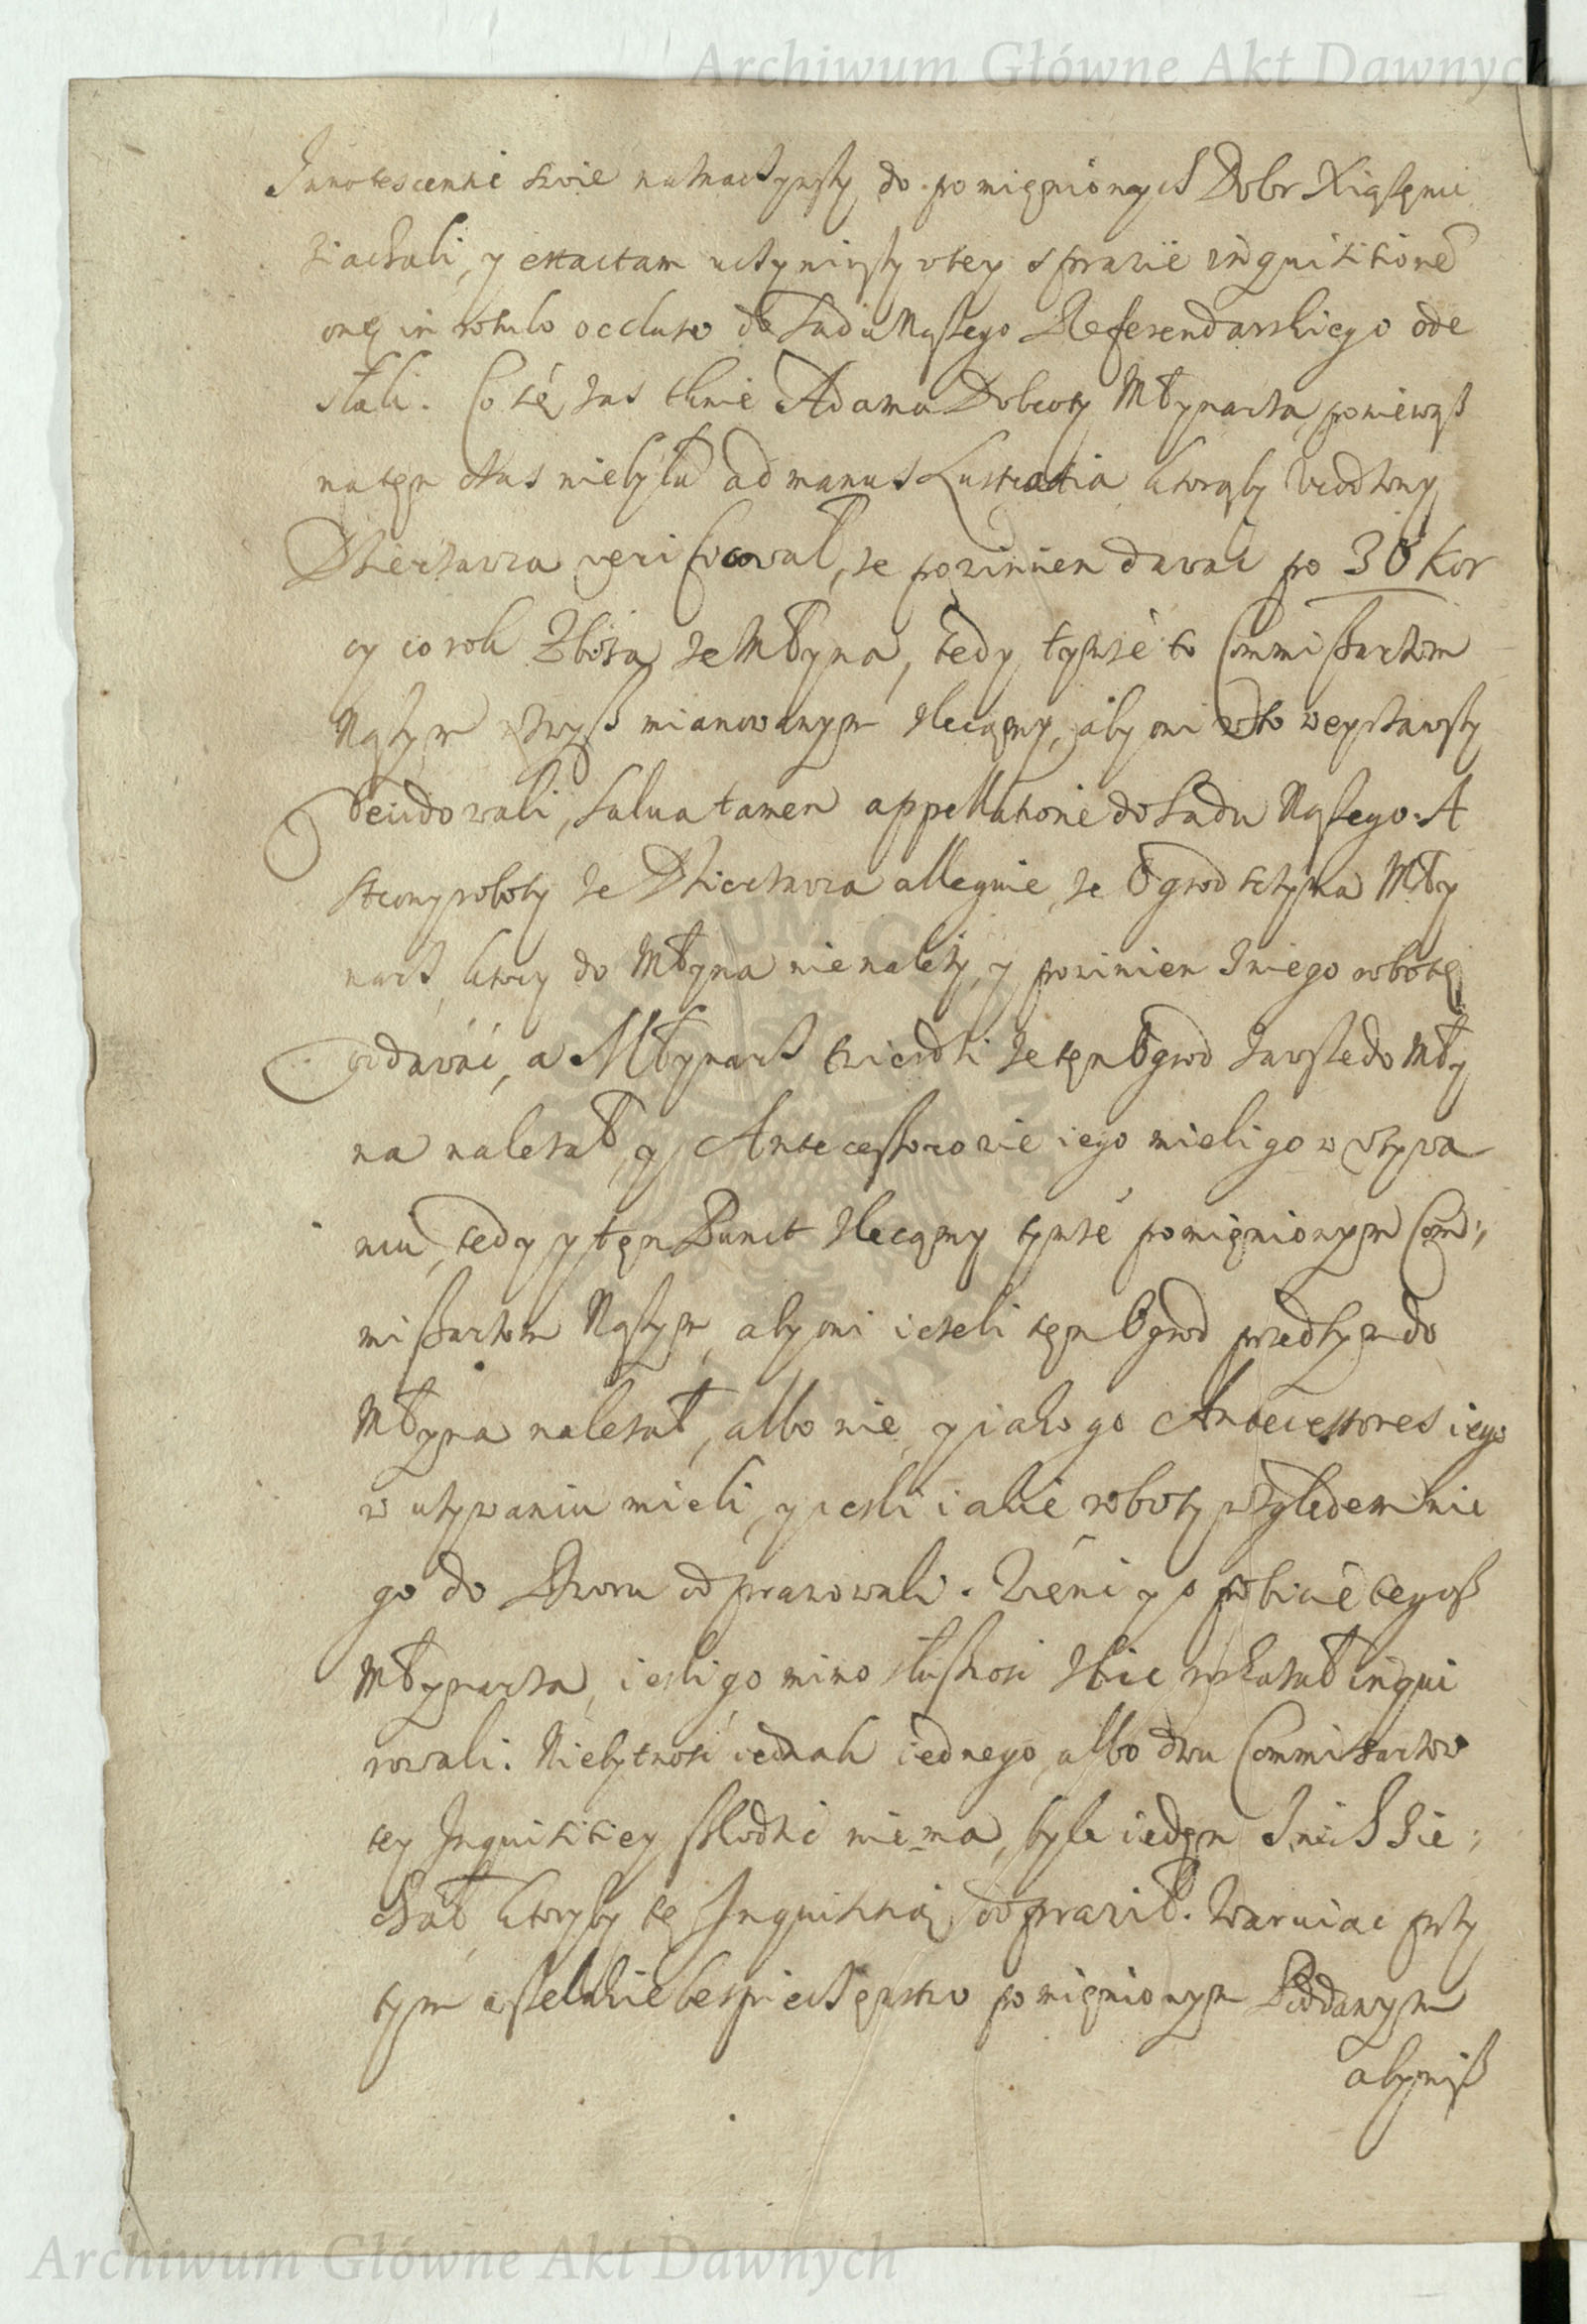 Archiwum Główne Akt Dawnych
Innotescencie swoie naznaczywszy do pomięnionych Dobr Xiąszęnic
ziachali, y exactam uczyniwszy w tey sprawie inquisitionē
onę in rotulo occluso do Sądu Naszego Referendarskiego ode
słali. Co się zas tknie Adama Młynarza, poniewasz
na tęn czas niebyła ad manus Lustratia, ktorąby Urodzony
Dzierzawca verificował, ze powinien dawać po 30 Kor
cy co rok Zboza ze Młyna, tedy tymze to Commissarzom
Naszym zwysz mianowanym zlecamy, aby oni w to weyrzawszy
decidowali, salua tamen appellatione do Sądu Naszego. A
strony roboty ze Dzierzawca alleguie, ze Ogrod trzyma Mły
narz, ktory do Młyna nienalezy, y powinien z niego robotę
oddawać, a Młynarz twierdzi ze tęn Ogrod zawsze do Mły
na nalezał, y Antecessorowie iego mieli go w uzywa
niu, tedy y tęn Punct zlecamy tymze pomięnionym Com:
missarzom Naszym, aby oni iezeli tęn Ogrod przedtym do
Młyna nalezał, albo nie, y iako go Antecessores iego
w uzywaniu mieli, y iesli iakie roboty względem nie
go do Dworu odprawowali. Więni y o pobicie tegosz
Młynarza, iesli go mimo słusznosc zbic roskazał inqui
rowali. Niebytnosc iednak iednego, albo dwu Commissarzow
tey Inquisitiey szkodzic niema, byle ieden z nich zie:
chał, ktoryby tę Inquisitią odprawił. Waruiąc przy
tym wszelakie bespieczęnstwo pomięnionym Poddanym
abymisz
Archiwum Główne Akt Dawnych